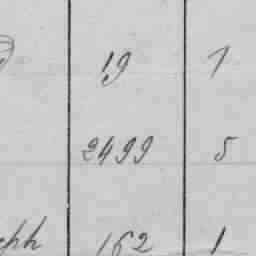 19 1
2499 5
162 1